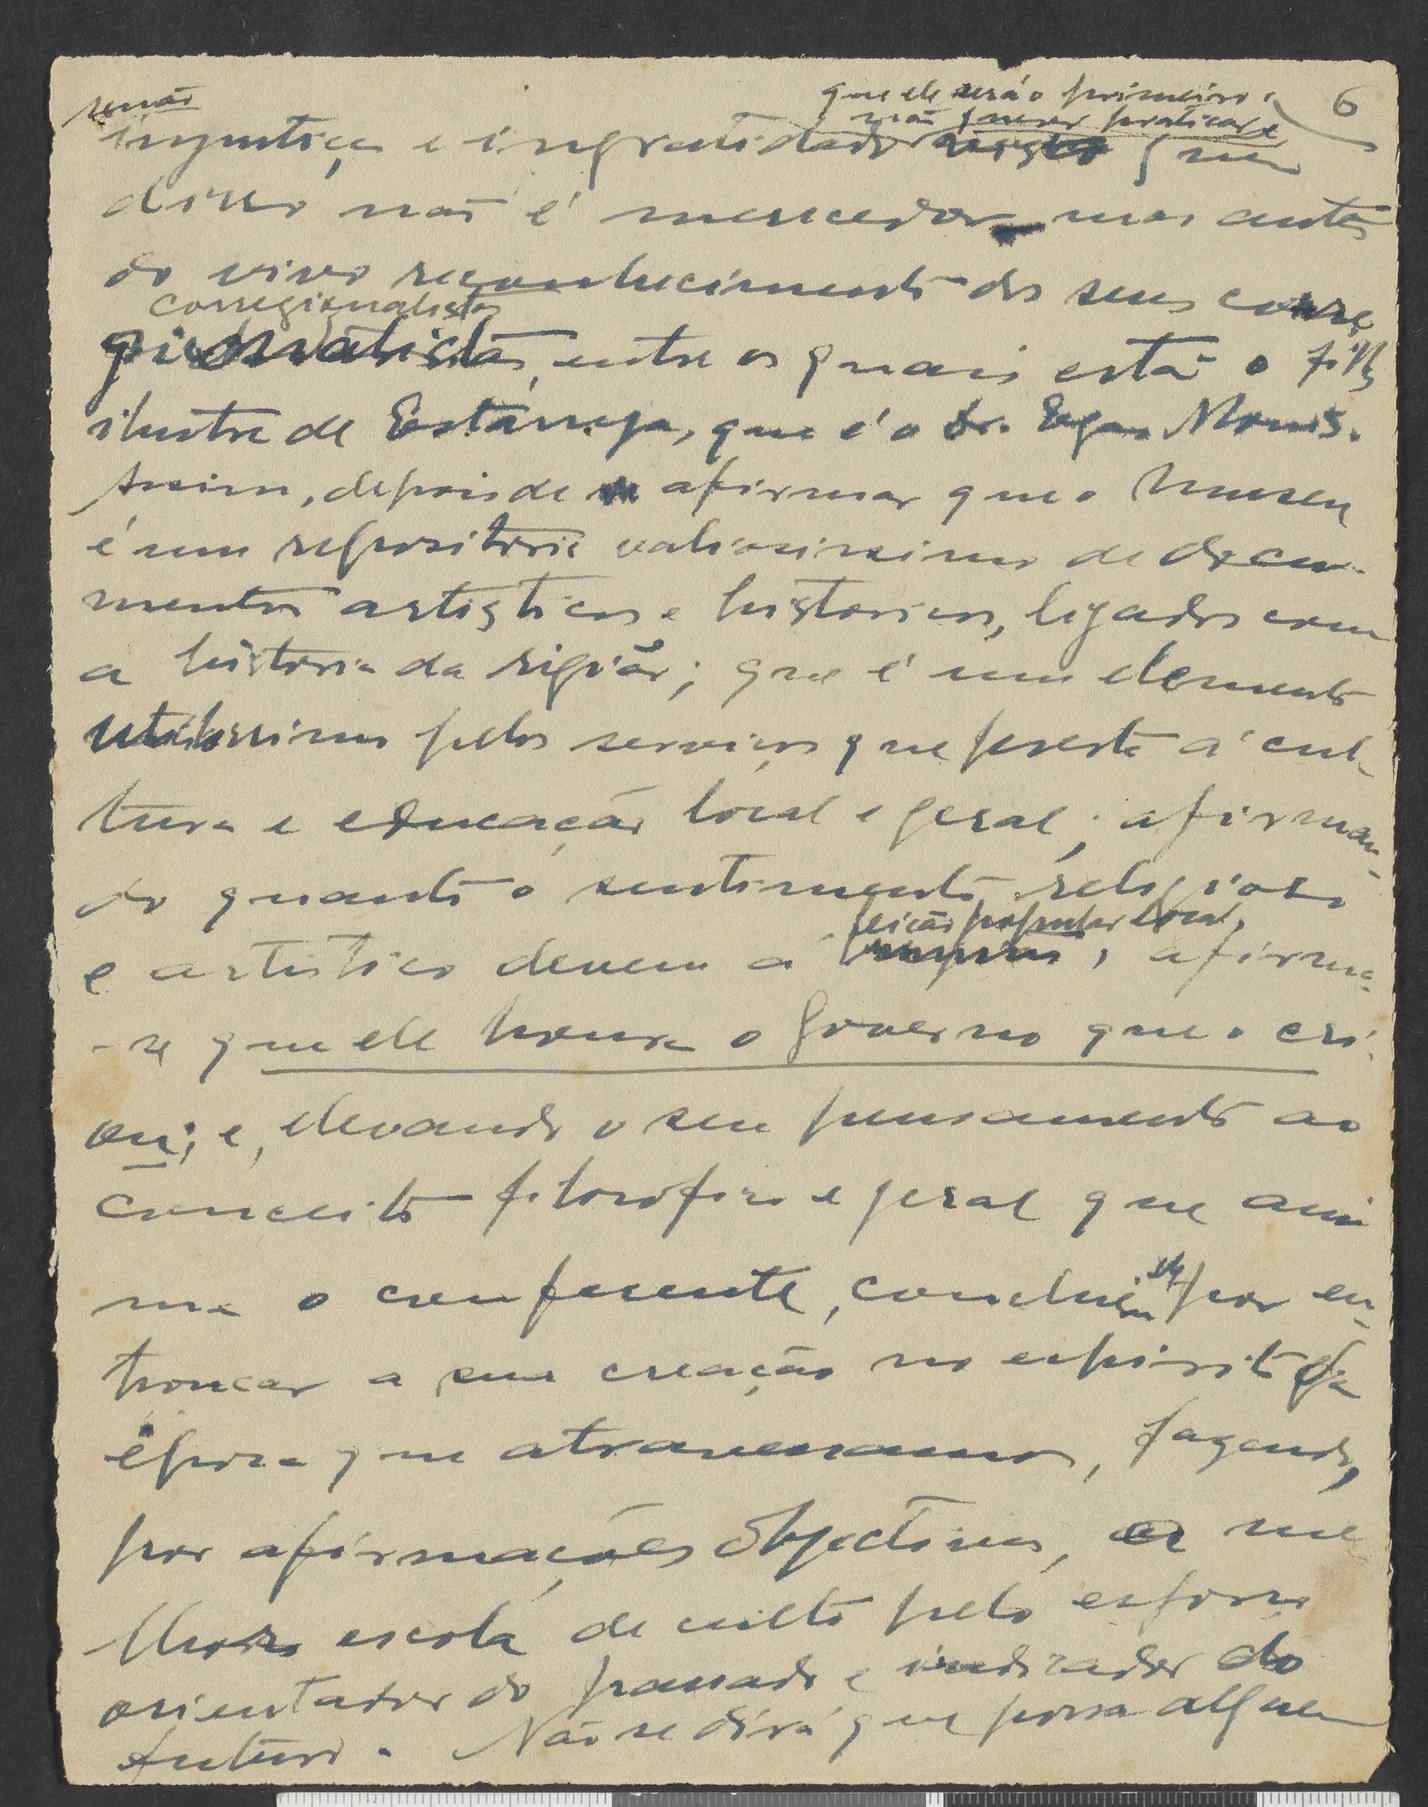 6
que ele será o primeiro a
senão não querer praticar e
injustiça e ingratidão quem
disso não é merecedor mas antes
do vivo reconhecimento dos seus corre
corregionalistas
gionalistas, entre os quais está o filho
ilustre de Estarreja, que é o dr. Egas Moniz.
Assim, depois de afirmar que o Museu
é um repositorio valiosissimo de docu-
mentos artisticos e historicos, ligados com
a historia da região; que é um elemento
utilissimo pelos serviços que presta á cul-
tura e educação local e geral; afirman-
do quanto o sentimento religioso
feição popular local,
e artistico devem á , afirma-
-se que ele honra o Governo que o cri-
ou; e, elevando o seu pensamento ao
conceito filosofico e geral que ani
ma o conferente, conclue por en-
troncar a sua creação no espirito da
época que atravessamos, fazendo,
por afirmações objectivas, a me
lhor escola de culto pelo esforço
orientador do passado e indicador do
futuro. Não se dirá que possa alguem